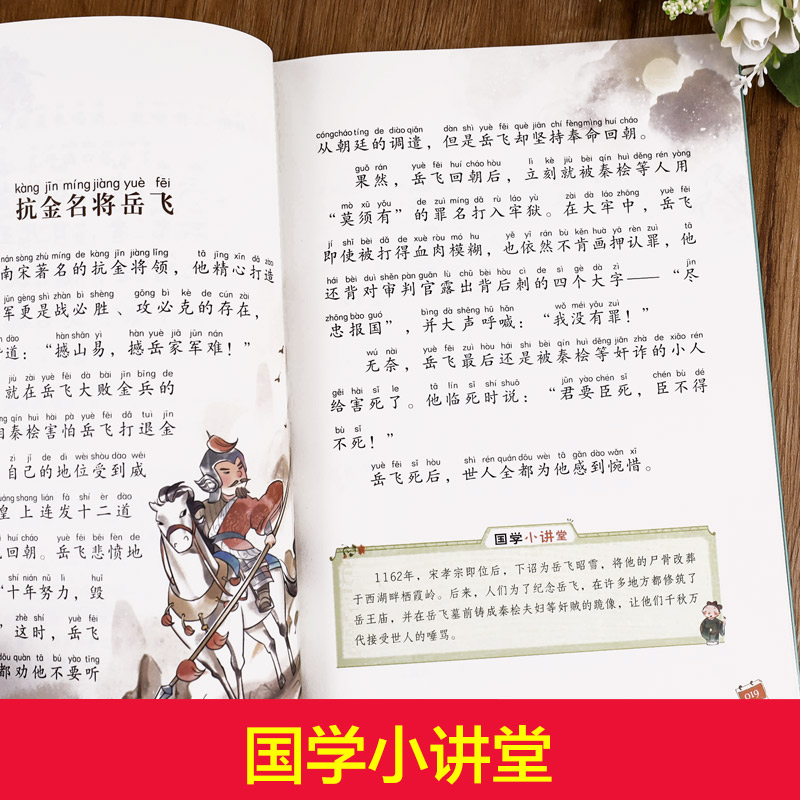 kàng jīn míng jiàng yuè fēi
抗金名将岳飞
nán sòng zhù míng de kàng jīn jiàng lǐng tā jīng xīn dǎ zào
南宋著名的抗金将领，他精心打造
jūn gèng shì zhàn bì shèng gōng bì kè de cún zài
军更是战必胜、攻必克的存在，
dào hàn shān yì hàn yuè jiā jūn nán
道：“撼山易，撼岳家军难！”
jiù zài yuè fēi dà bài jīn bīng de
就在岳飞大败金兵的
qín huì hài pà yuè fēi dǎ tuì jīn
相秦桧害怕岳飞打退金
zì jǐ de dì wèi shòu dào wēi
自己的地位受到威
huáng shang lián fā shí èr dào
皇上连发十二道
huí cháo yuè fēi bēi fèn de
回朝。岳飞悲愤地
shí nián nǔ lì huǐ
“十年努力，毁
zhè shí yuè fēi
”这时，岳飞
dōu quàn tā bú yào tīng
都劝他不要听
cóng cháo tíng de diào qiǎn dàn shì yuè fēi què jiān chí fèng mìng huí cháo
从朝廷的调遣，但是岳飞却坚持奉命回朝。
guǒ rán yuè fēi huí cháo hòu lì kè jiù bèi qín huì děng rén yòng
果然，岳飞回朝后，立刻就被秦桧等人用
mò xū yǒu de zuì míng dǎ rù láo yù zài dà láo zhōng yuè fēi
“莫须有”的罪名打入牢狱。在大牢中，岳飞
jí shǐ bèi dǎ de xuè ròu mó hu yě yī rán bù kěn huà yā rèn zuì tā
即使被打得血肉模糊，也依然不肯画押认罪，他
hái bèi duì shěn pàn guān lù chū bèi hòu cì de sì gè dà zì jìn
还背对审判官露出背后刺的四个大字——“尽
zhōng bào guó bìng dà shēng hū hǎn wǒ méi yǒu zuì
忠报国”，并大声呼喊：“我没有罪！”
wú nài yuè fēi zuì hòu hái shi bèi qín huì děng jiān zhà de xiǎo rén
无奈，岳飞最后还是被秦桧等奸诈的小人
gěi hài sǐ le tā lín sǐ shí shuō jūn yào chén sǐ chén bù dé
给害死了。他临死时说：“君要臣死，臣不得
bù sǐ
不死！”
yuè fēi sǐ hòu shì rén quán dōu wèi tā gǎn dào wǎn xī
岳飞死后，世人全都为他感到惋惜。
国学小讲堂
1162年，宋孝宗即位后，下诏为岳飞昭雪，将他的尸骨改葬
于西湖畔栖霞岭。后来，人们为了纪念岳飞，在许多地方都修筑了
岳王庙，并在岳飞墓前铸成秦桧夫妇等奸贼的跪像，让他们千秋万
代接受世人的唾骂。
019
国学小讲堂